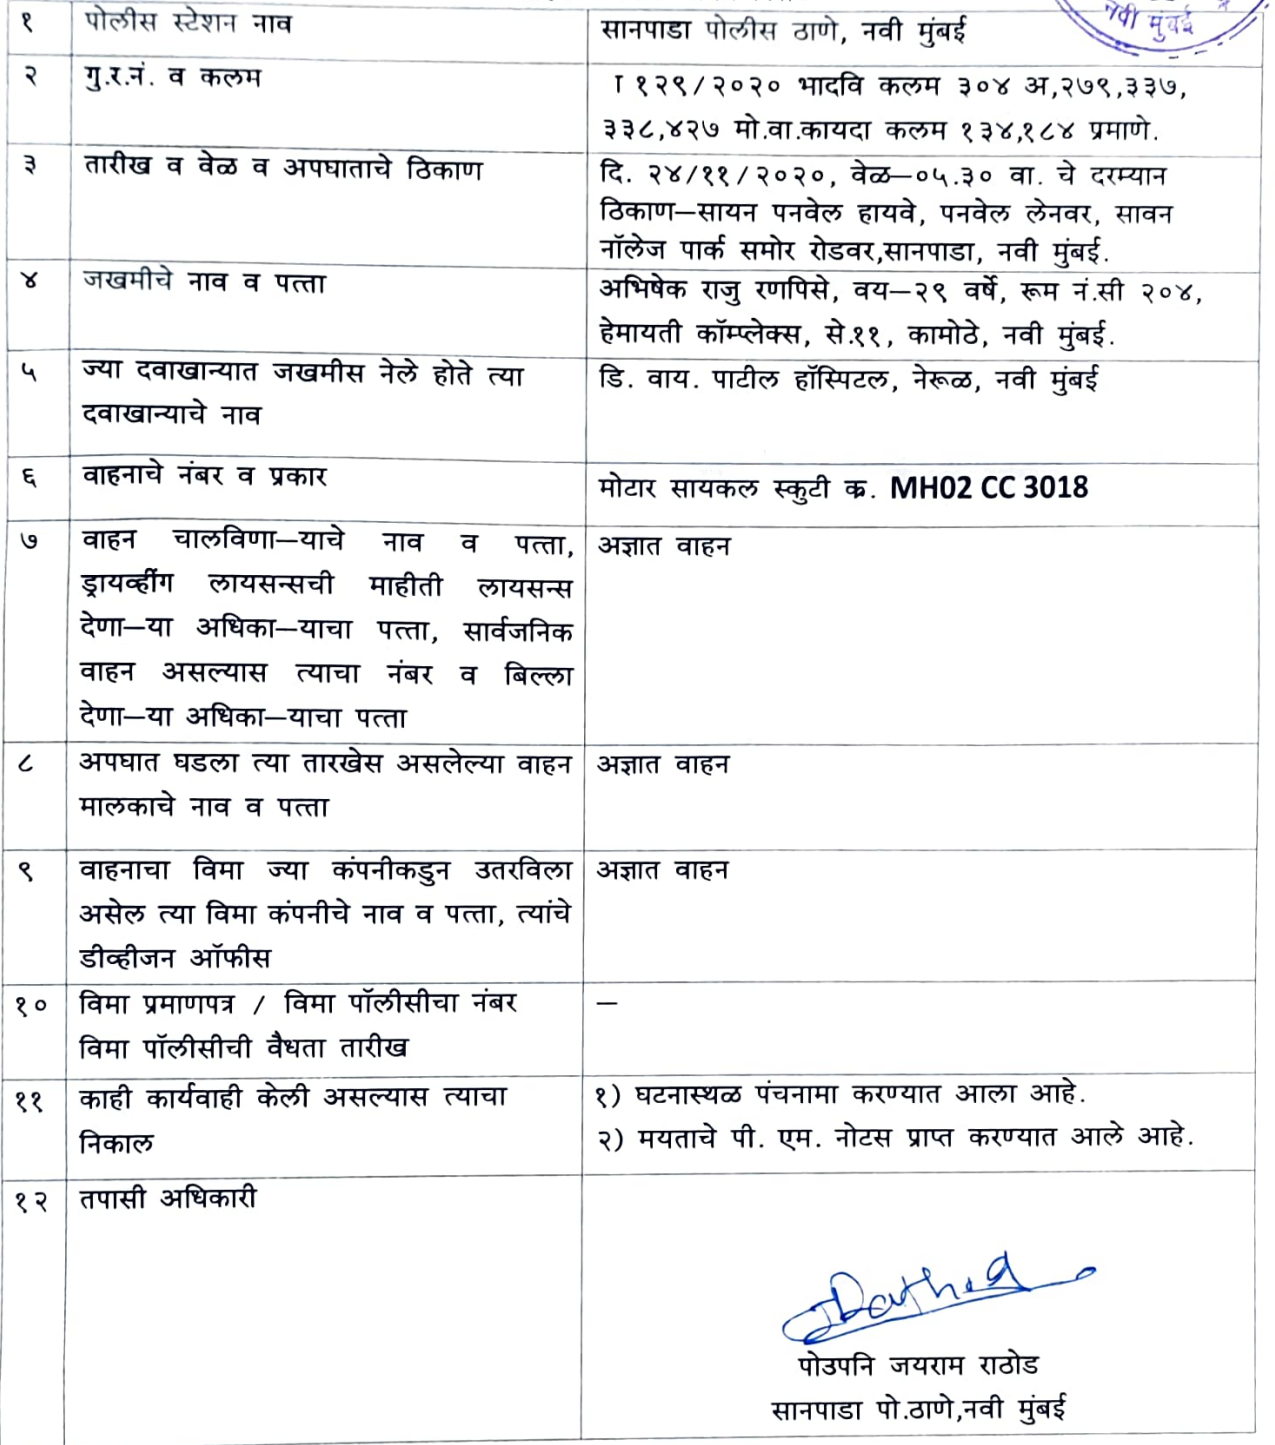 नवी मुंबई
१ पोलीस स्टेशन नाव
सानपाडा पोलीस ठाणे, नवी मुंबई
२ गु.र.नं. व कलम
I १२९/२०२० भादवि कलम ३०४ अ,२७९,३३७,
३३८,४२७ मो.वा.कायदा कलम १३४,१८४ प्रमाणे.
३ तारीख व वेळ व अपघाताचे ठिकाण
दि. २४/११/२०२०, वेळ—०५.३० वा. चे दरम्यान
ठिकाण—सायन पनवेल हायवे, पनवेल लेनवर, सावन
नॉलेज पार्क समोर रोडवर,सानपाडा, नवी मुंबई.
४ जखमीचे नाव व पत्ता
अभिषेक राजु रणपिसे, वय—२९ वर्षे, रूम नं.सी २०४,
हेमायती कॉम्प्लेक्स, से.११, कामोठे, नवी मुंबई.
५ ज्या दवाखान्यात जखमीस नेले होते त्या
दवाखान्याचे नाव
डि. वाय. पाटील हॉस्पिटल, नेरूळ, नवी मुंबई
६ वाहनाचे नंबर व प्रकार
मोटार सायकल स्कुटी क्र. MH02 CC 3018
७ वाहन चालविणा—याचे नाव व पत्ता,
ड्रायव्हींग लायसन्सची माहीती लायसन्स
देणा—या अधिका—याचा पत्ता, सार्वजनिक
वाहन असल्यास त्याचा नंबर व बिल्ला
देणा—या अधिका—याचा पत्ता
अज्ञात वाहन
८ अपघात घडला त्या तारखेस असलेल्या वाहन
मालकाचे नाव व पत्ता
अज्ञात वाहन
९ वाहनाचा विमा ज्या कंपनीकडुन उतरविला
असेल त्या विमा कंपनीचे नाव व पत्ता, त्यांचे
डीव्हीजन ऑफीस
अज्ञात वाहन
१० विमा प्रमाणपत्र / विमा पॉलीसीचा नंबर
विमा पॉलीसीची वैधता तारीख
—
११ काही कार्यवाही केली असल्यास त्याचा
निकाल
१) घटनास्थळ पंचनामा करण्यात आला आहे.
२) मयताचे पी. एम. नोटस प्राप्त करण्यात आले आहे.
१२ तपासी अधिकारी
पोउपनि जयराम राठोड
सानपाडा पो.ठाणे,नवी मुंबई